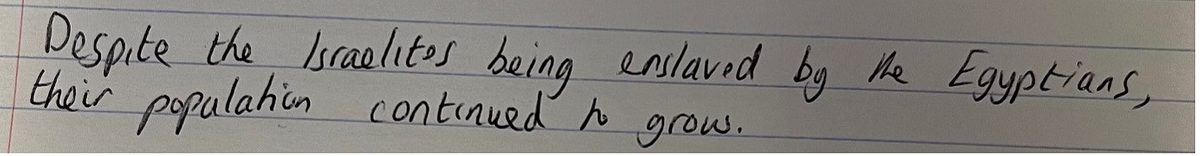 Despite the Israelites being enslaved by the Egyptians,
their population continued to grow.